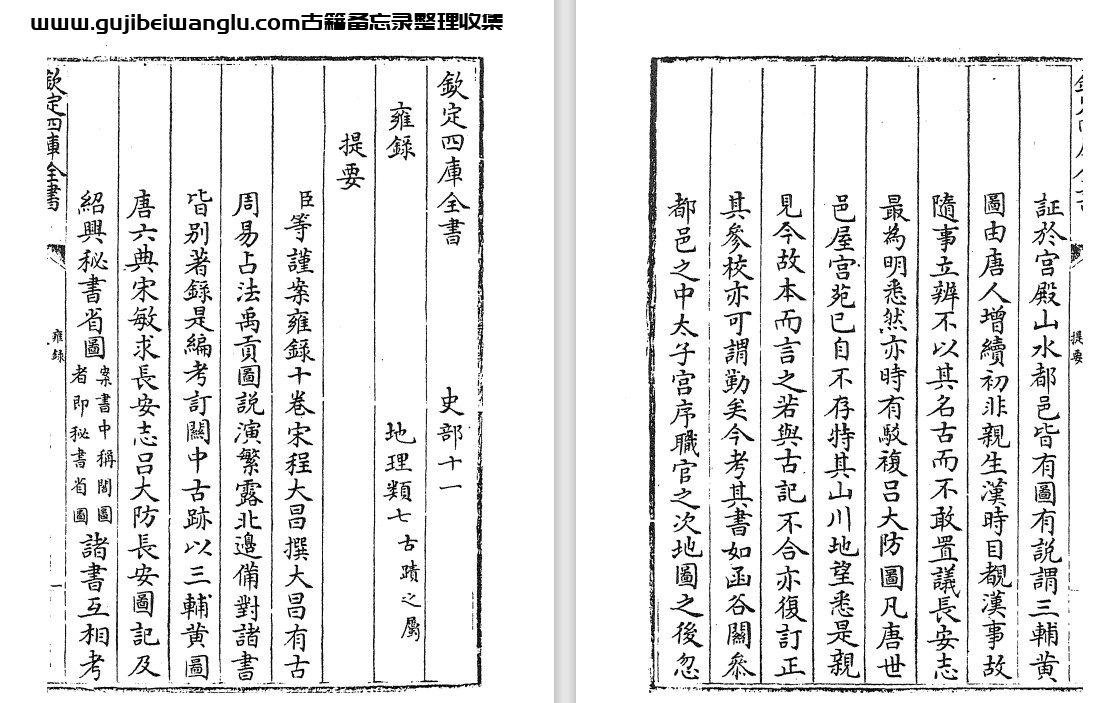 www.gujibeiwanglu.com古籍备忘录整理收集
欽定四庫全書 史部十一
雍錄 地理類七古蹟之屬
提要
臣等謹案雍錄十卷宋程大昌撰大昌有古
周易占法禹貢圖說演繁露北邊備對諸書
皆別著錄是編考訂關中古跡以三輔黄圖
唐六典宋敏求長安志吕大防長安圖記及
紹興秘書省圖案書中稱閣圖者即秘書省圖諸書互相考
欽定四庫全書
雍錄
一
提要
証於宫殿山水都邑皆有圖有説謂三輔黄
圖由唐人增續初非親生漢時目覩漢事故
隨事立辨不以其名古而不敢置議長安志
最為明悉然亦時有駮複吕大防圖凡唐世
邑屋宫苑已自不存特其山川地望悉是親
見今故本而言之若與古記不合亦復訂正
其參校亦可謂勤矣今考其書如函谷關叅
都邑之中太子宫序職官之次地圖之後忽